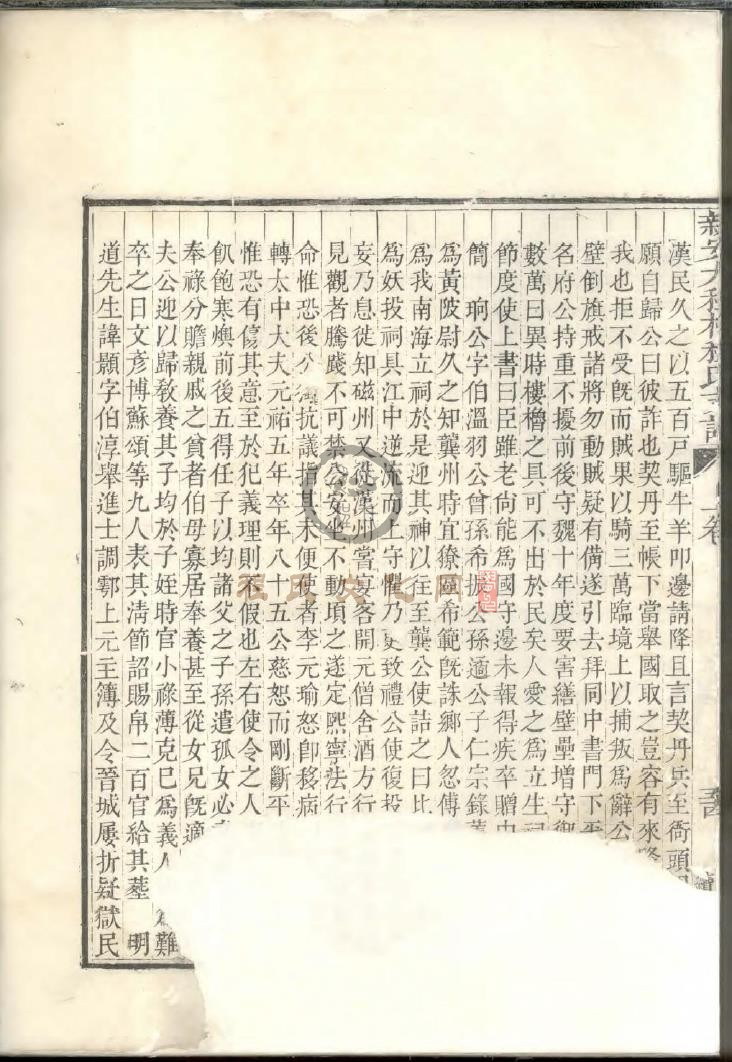 漢民久之以五百戸驅牛羊叩邊請降且言契丹兵至衙頭
願自歸公曰彼詐也契丹至帳下當舉國取之豈容有來降
我也拒不受旣而賊果以騎三萬臨境上以捕叛爲辭公
壁倒旗戒諸將勿動賊疑有備遂引去拜同中書門下平
名府公持重不擾前後守魏十年度要害繕壁壘增守禦
數萬曰異時樓櫓之具可不出於民矣人愛之爲立生祠
節度使上書曰臣雖老尙能爲國守邊未報得疾卒贈中
簡 珦公字伯溫羽公曾孫希振公孫遹公子仁宗錄舊
爲黃陂尉久之知龔州時宜獠 希範旣誅鄉人忽傳
爲我南海立祠於是迎其神以往至龔公使詰之曰比
爲妖投祠具江中逆流而上守懼乃更致禮公使復投
妄乃息徙知磁州又徙漢州嘗宴客開元僧舍酒方行
見觀者騰踐不可禁公安坐不動頃之遂定熙寧法行
命惟恐後公獨抗議指其未便使者李元瑜怒卽移病
轉太中大夫元祐五年卒年八十五公慈恕而剛斷平
惟恐有傷其意至於犯義理則不假也左右使令之人
飢飽寒燠前後五得任子以均諸父之子孫遣孤女必
奉祿分贍親戚之貧者伯母寡居奉養甚至從女兄旣適
夫公迎以歸敎養其子均於子姪時官小祿薄克己爲義人 爲難
卒之日文彥博蘇頌等九人表其淸節詔賜帛二百官給其葬 明
道先生諱顥字伯淳舉進士調鄠上元主簿及令晉城屢折疑獄民